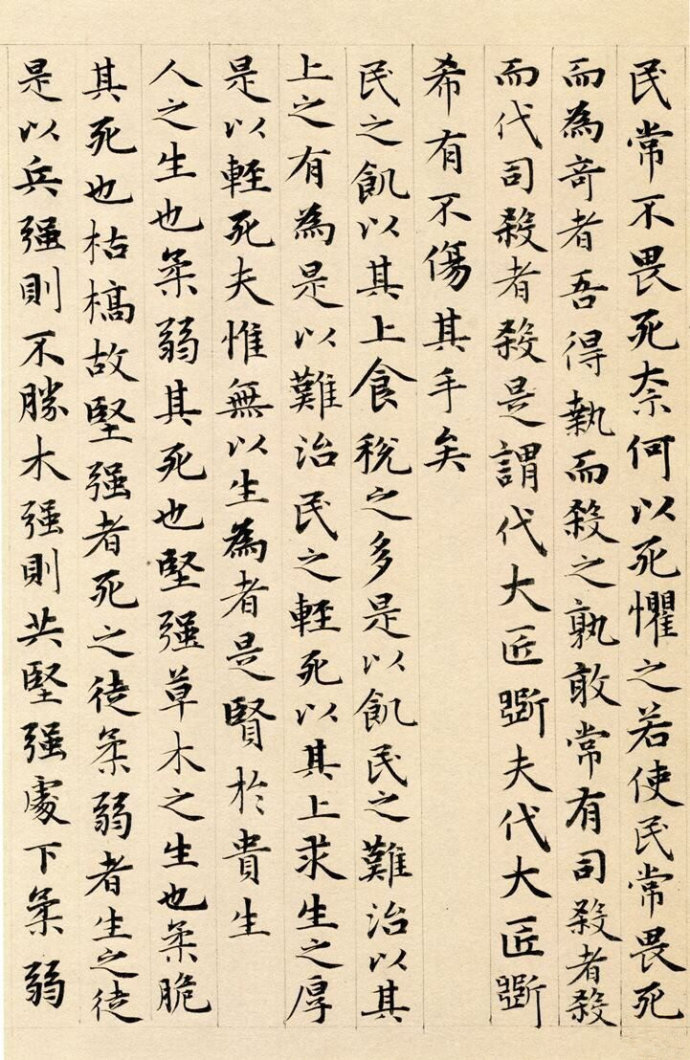 民常不畏死奈何以死懼之若使民常畏死
而為竒者吾得執而殺之孰敢常有司殺者殺
而代司殺者殺是謂代大匠斲夫代大匠斲
希有不傷其手矣
民之飢以其上食稅之多是以飢民之難治以其
上之有為是以難治民之輕死以其上求生之厚
是以輕死夫惟無以生為者是賢於貴生
人之生也柔弱其死也堅强草木之生也柔脆
其死也枯槁故堅强者死之徒柔弱者生之徒
是以兵强則不勝木强則共堅强處下柔弱